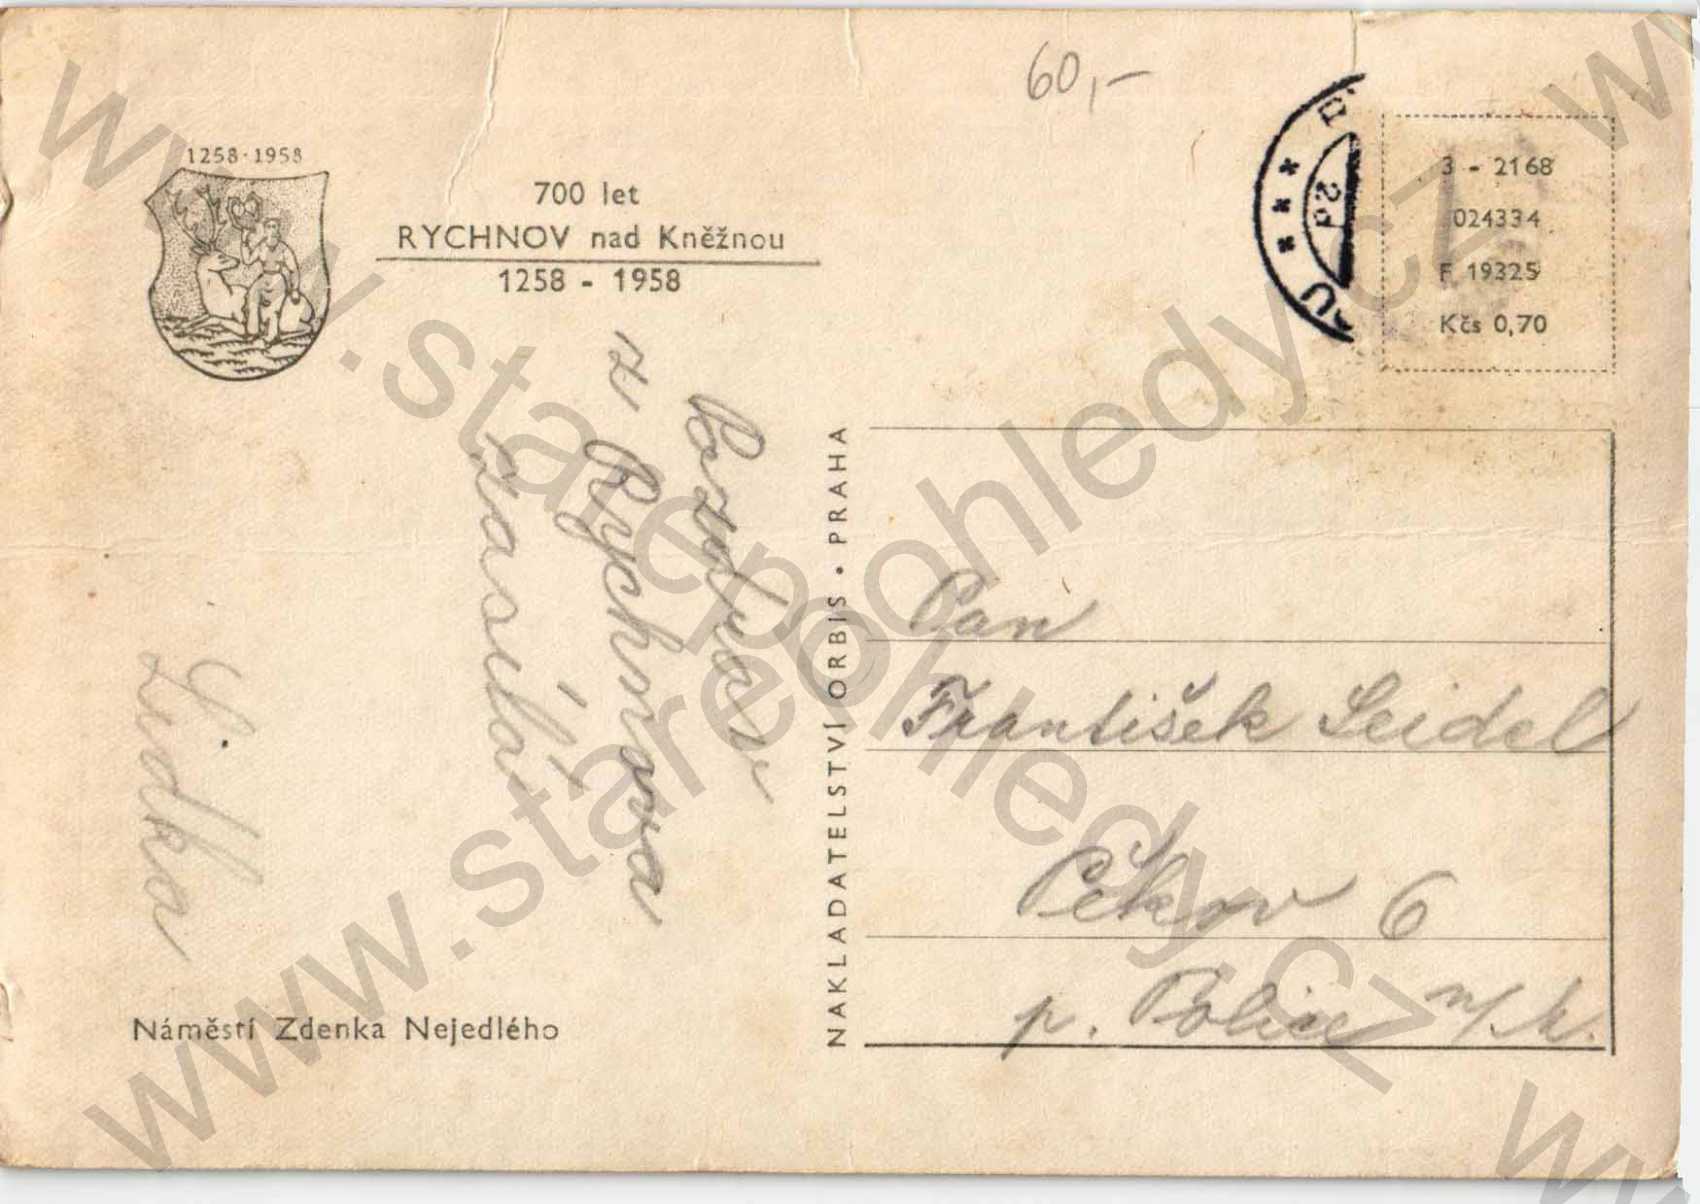 60,-
1258·1958
700 let
RYCHNOV nad Kněžnou
1258 - 1958
3 - 2168
024334
F 19325
Kčs 0,70
Pozdrav
z Rychnova
zasílá
Lidka
Náměstí Zdenka Nejedlého
NAKLADATELSTVÍ ORBIS • PRAHA
Pan
František Seidel
Pěkov 6
p. Police n/M.
www.starepohledy.cz
www.starepohledy.cz